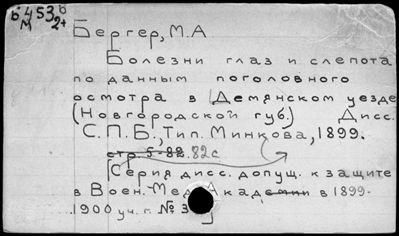 6453 б
М 2+
Бергер, М.А
Болезни глаз и слепота
по данным поголовного
осмотра в Демянском уезде
(Новгородской губ.) Дисс.
С.П.Б., Тип. Минкова, 1899.
стр. 5-82. 82с
[Серия дисс. допущ. к защите
в Воен.-Мед. Академии в 1899-
1900 уч. г. № 3 ]